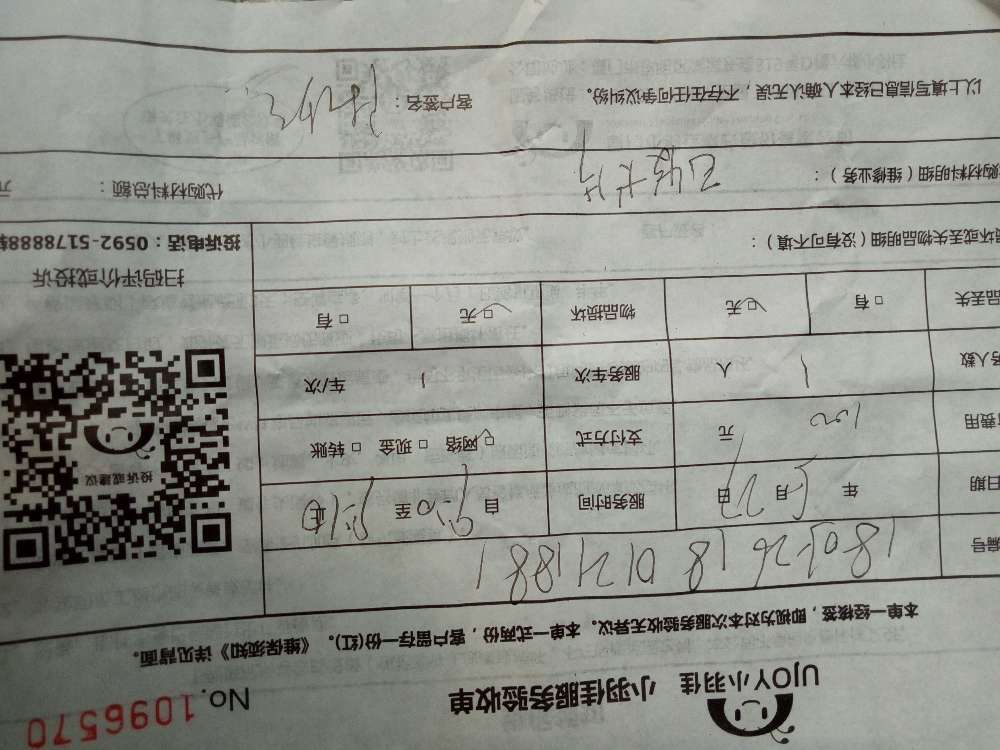 UJOY小羽佳 小羽佳服务验收单 No.1096570
本单一经核签，即视为对本次服务验收无异议。本单一式两份，客户留存一份(红)。《维保须知》详见背面。
编号 180526180121881
日期 年 5月27日 服务时间 自 至 止
费用 100 元 支付方式 网络 □ 现金 □ 转账
务人数 1 人 服务车次 1 车/次
品丢失 □ 有 □ 无 物品损坏 □ 无 □ 有
损坏或丢失物品明细（没有可不填）：
购材料明细（维修业务）： 代购材料总额： 元
以上填写信息已经本人确认无误，不存在任何争议纠纷。 客户签名：
投诉或建议
扫码评价或投诉
投诉电话：0592-5178888转